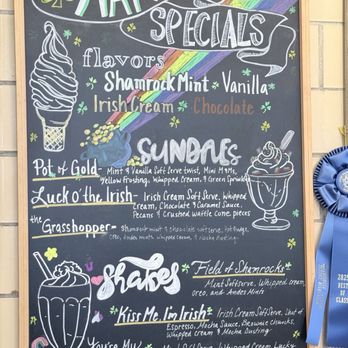 SPECIALS
flavors
Shamrock Mint · Vanilla
Irish Cream · Chocolate
SUNDAES
Pot of Gold - Mint & Vanilla Soft Serve twist, Mini M&Ms,
Yellow Frosting, Whipped Cream, & Green Sprinkles
Luck o' the Irish - Irish Cream Soft Serve, Whipped
Cream, Chocolate & Caramel Sauce,
Pecans & Crushed Waffle Cone pieces
the
Grasshopper - Shamrock mint & chocolate soft serve, hot fudge,
oreo, Andes mints, whipped cream, & Mocha dusting
shakes
"Field of Shamrocks"
Mint Soft Serve, Whipped cream,
oreo, and Andes Mints
Kiss Me, I'm Irish
Irish Cream Soft Serve, Shot of
Espresso, Mocha Sauce, Brownie Chunks,
Whipped cream & Mocha Dusting
You're My
Whipped cream, Lucky
202
BEST
OF
CLASS